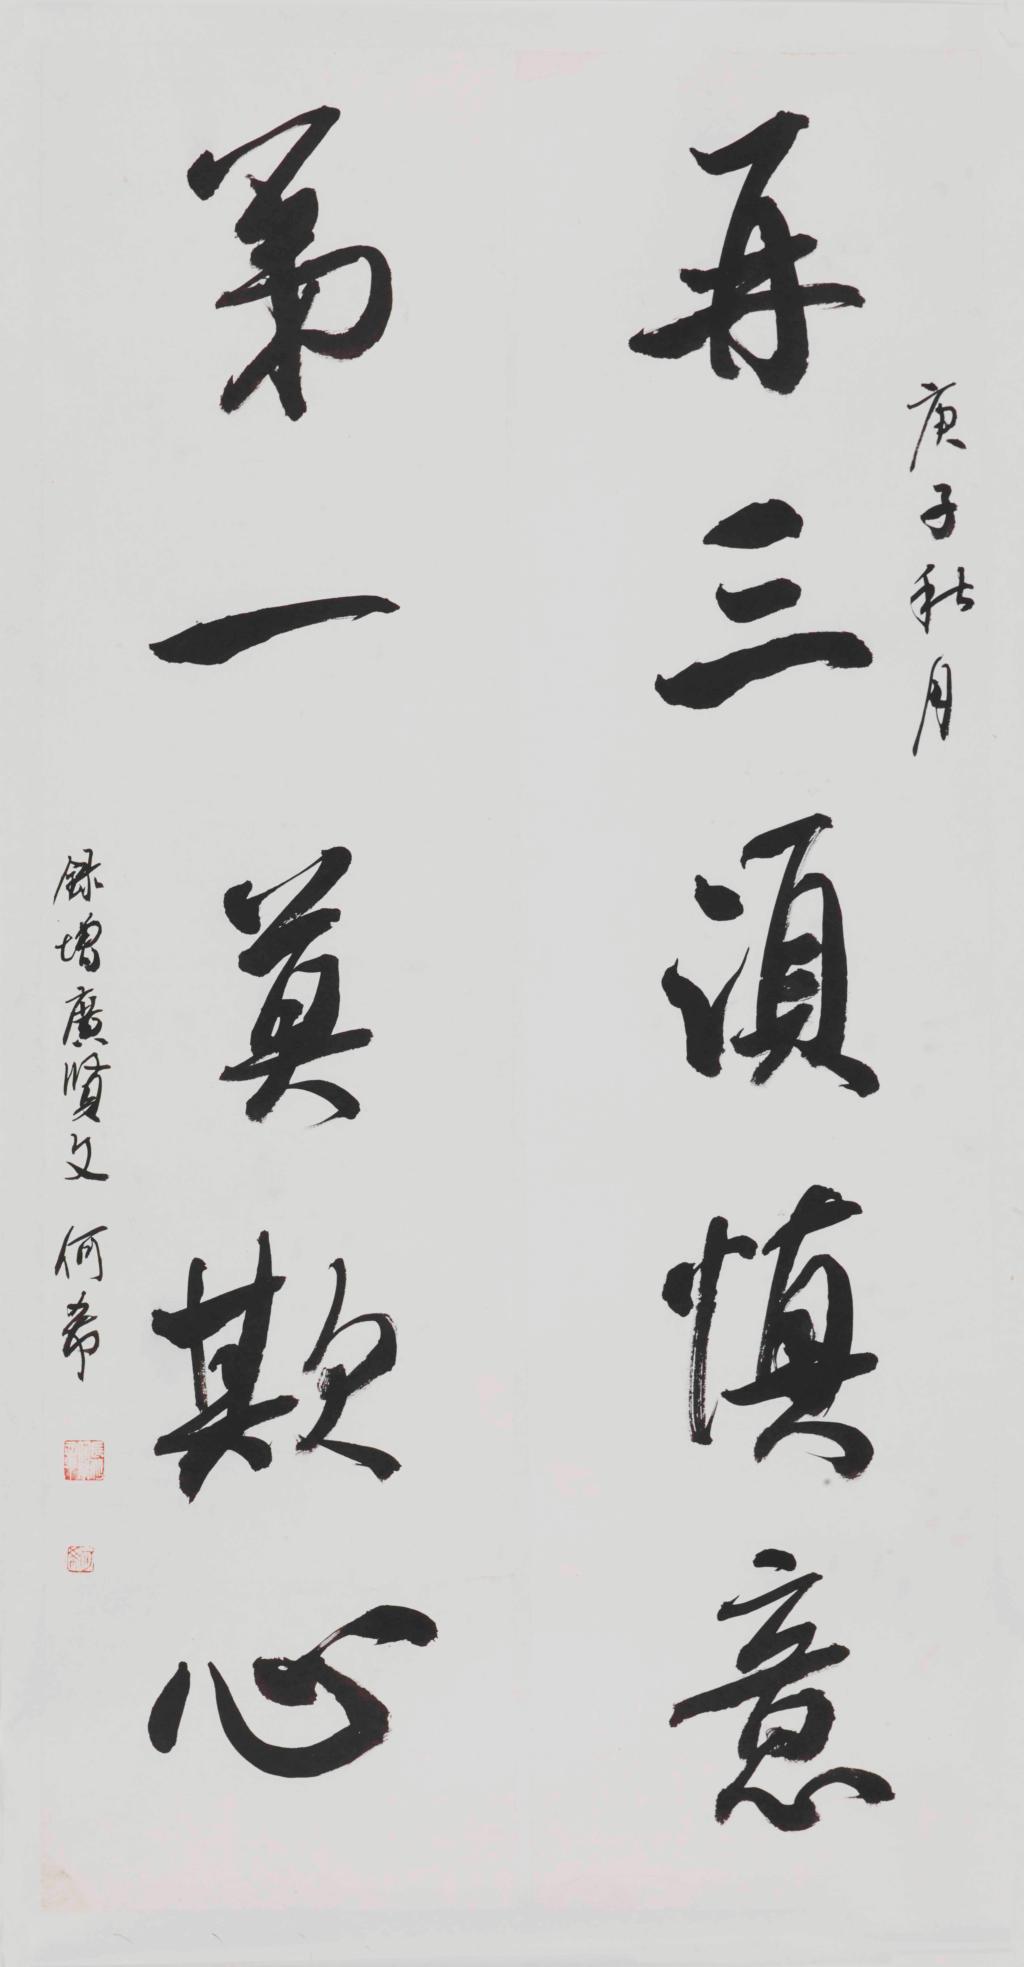 庚子秋月
再三須慎意
第一莫欺心
録增廣賢文 何希